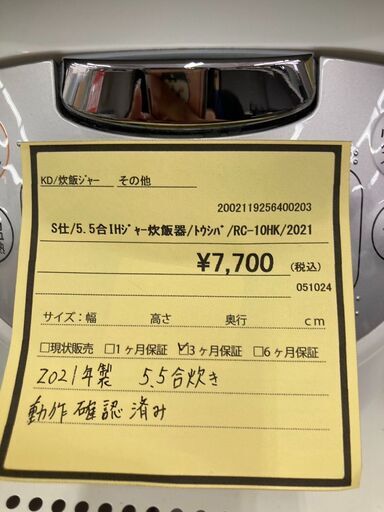 KD/炊飯ジャー その他
2002119256400203
S仕/5.5合IHジャー炊飯器/トウシバ/RC-10HK/2021
¥7,700 (税込)
051024
サイズ:幅 高さ 奥行 cm
□現状販売 □1ヶ月保証 ☑3ヶ月保証 □6ヶ月保証
2021年製 5.5合炊き
動作確認済み